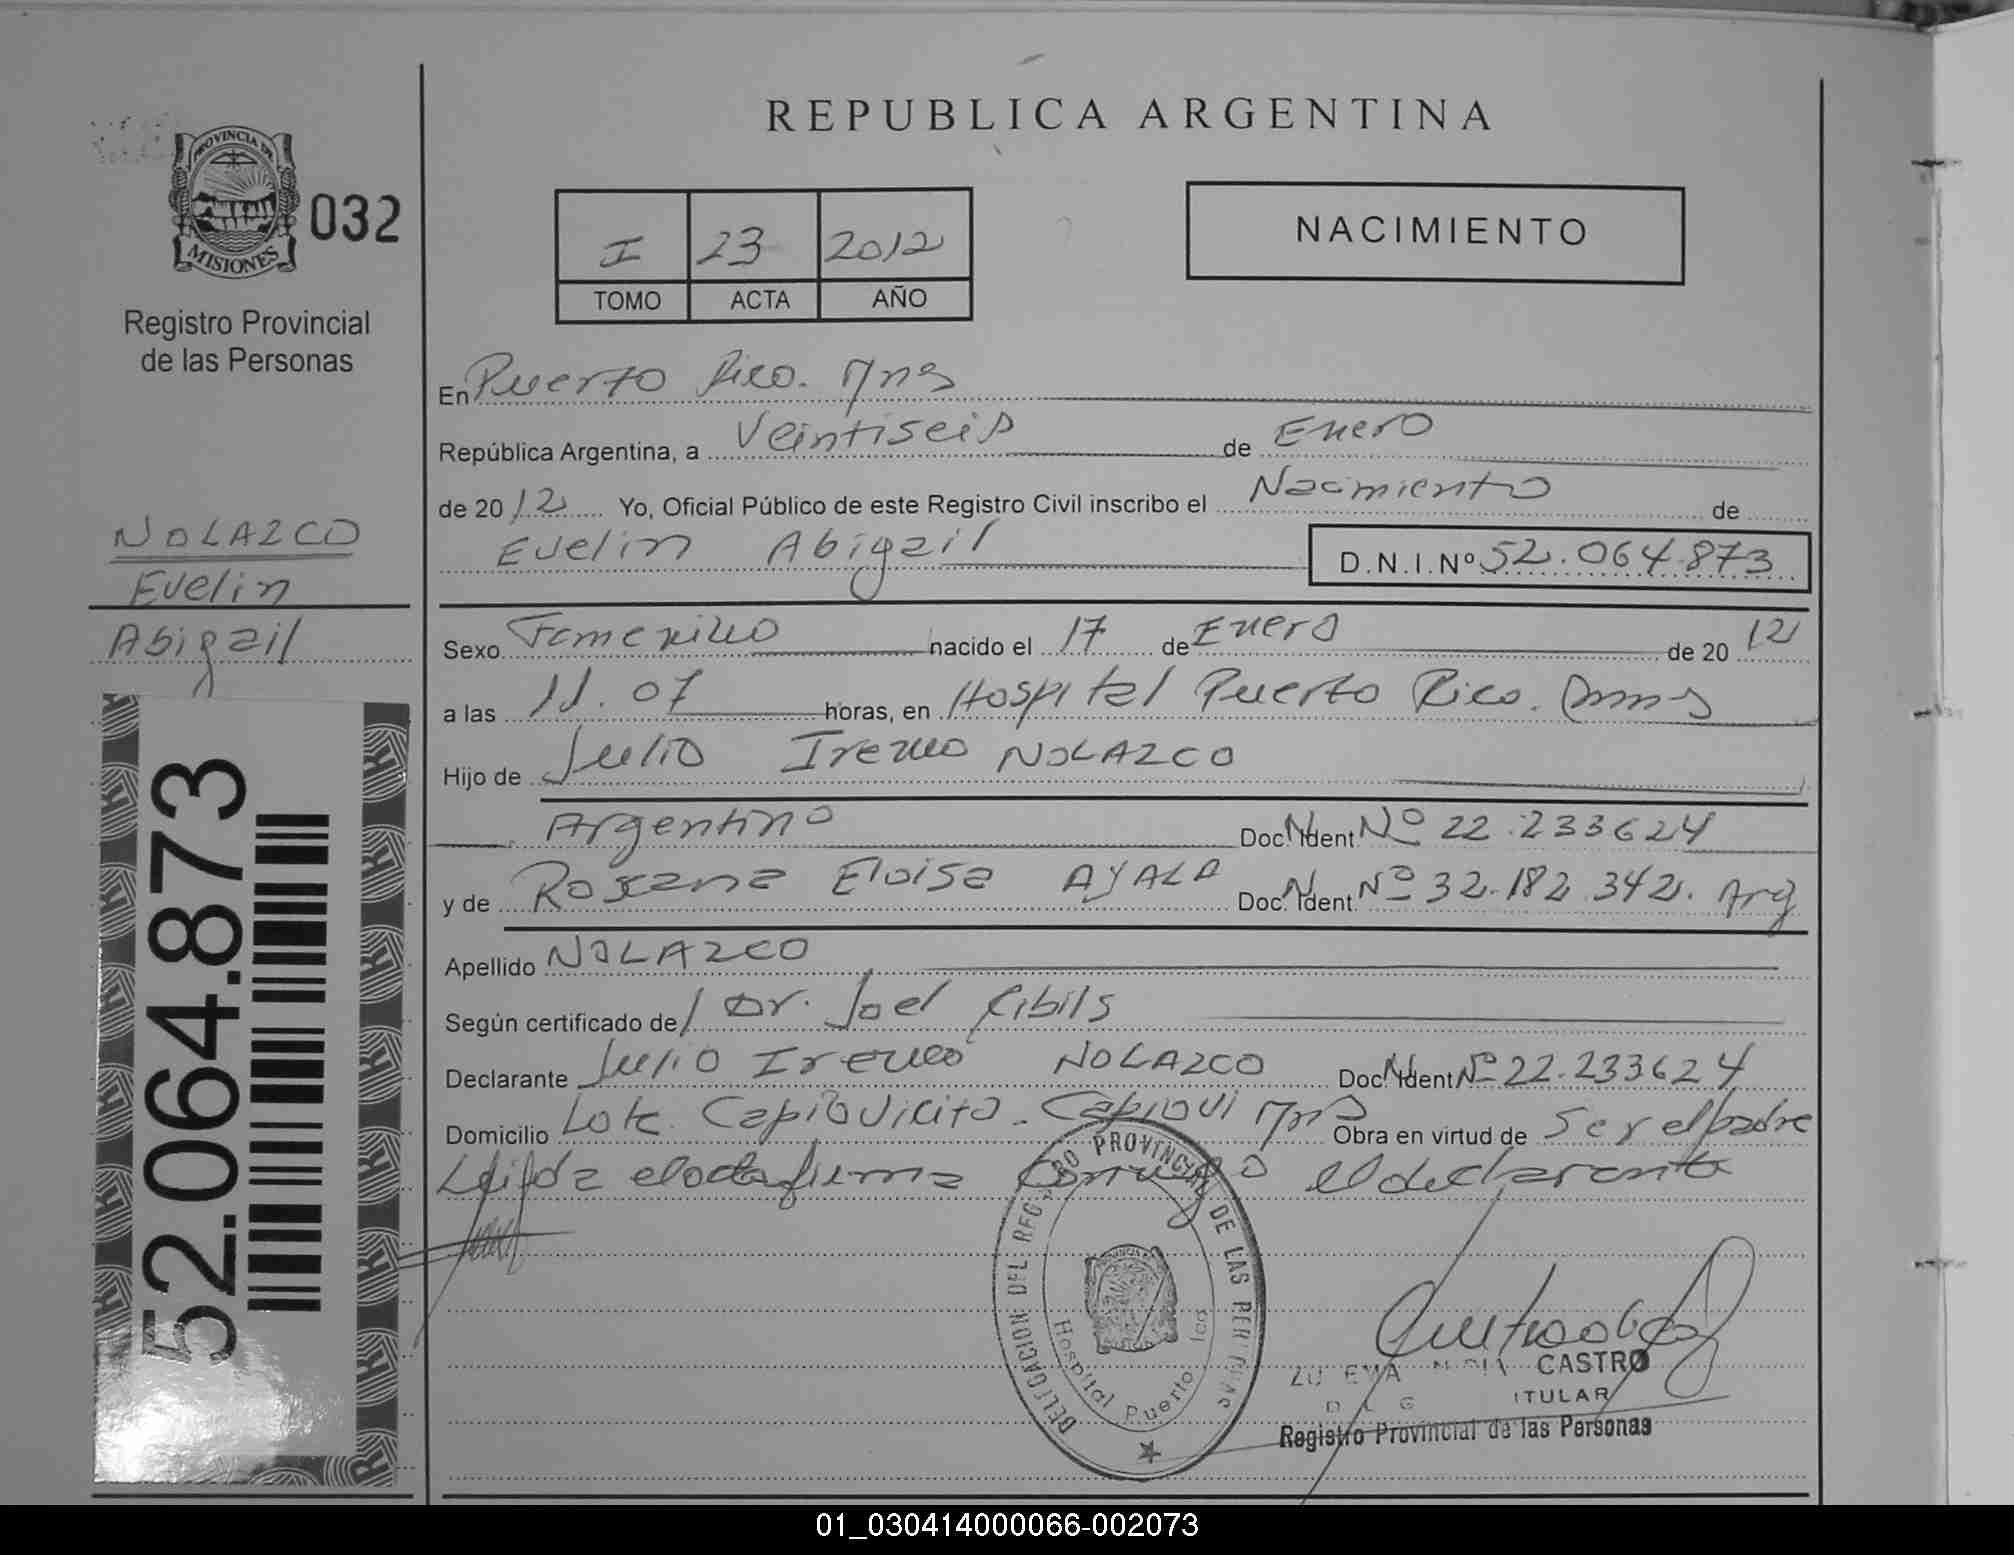 REPUBLICA ARGENTINA
PROVINCIA DE
MISIONES
032
Registro Provincial
de las Personas
I 23 2012
TOMO ACTA AÑO
NACIMIENTO
En Puerto Rico. Mns
República Argentina, a Veintiseis de Enero
de 2012 Yo, Oficial Público de este Registro Civil inscribo el Nacimiento de
Evelin Abigail D.N.I.Nº 52.064.873
NOLAZCO
Evelin
Abigail
52.064.873
Sexo Femenino nacido el 17 de Enero de 2012
a las 11.07 horas, en Hospital Puerto Rico.
Hijo de Julio Ireneo NOLAZCO
Argentino Doc. Ident. Nº 22.233624
y de Roxana Eloisa AYALA Doc. Ident. Nº 32.182.342. Arg
Apellido NOLAZCO
Según certificado de Dr. Joel Ribils
Declarante Julio Ireneo NOLAZCO Doc. Ident Nº 22.233624
Domicilio Lote Capiovicito - Capiovi Mns Obra en virtud de Ser el padre
Leifda el acta firma Conmigo el declarante
DELEGACION DEL REGISTRO PROVINCIAL DE LAS PERSONAS
Hospital Puerto Rico
CASTRO
TITULAR
Registro Provincial de las Personas
01_030414000066-002073